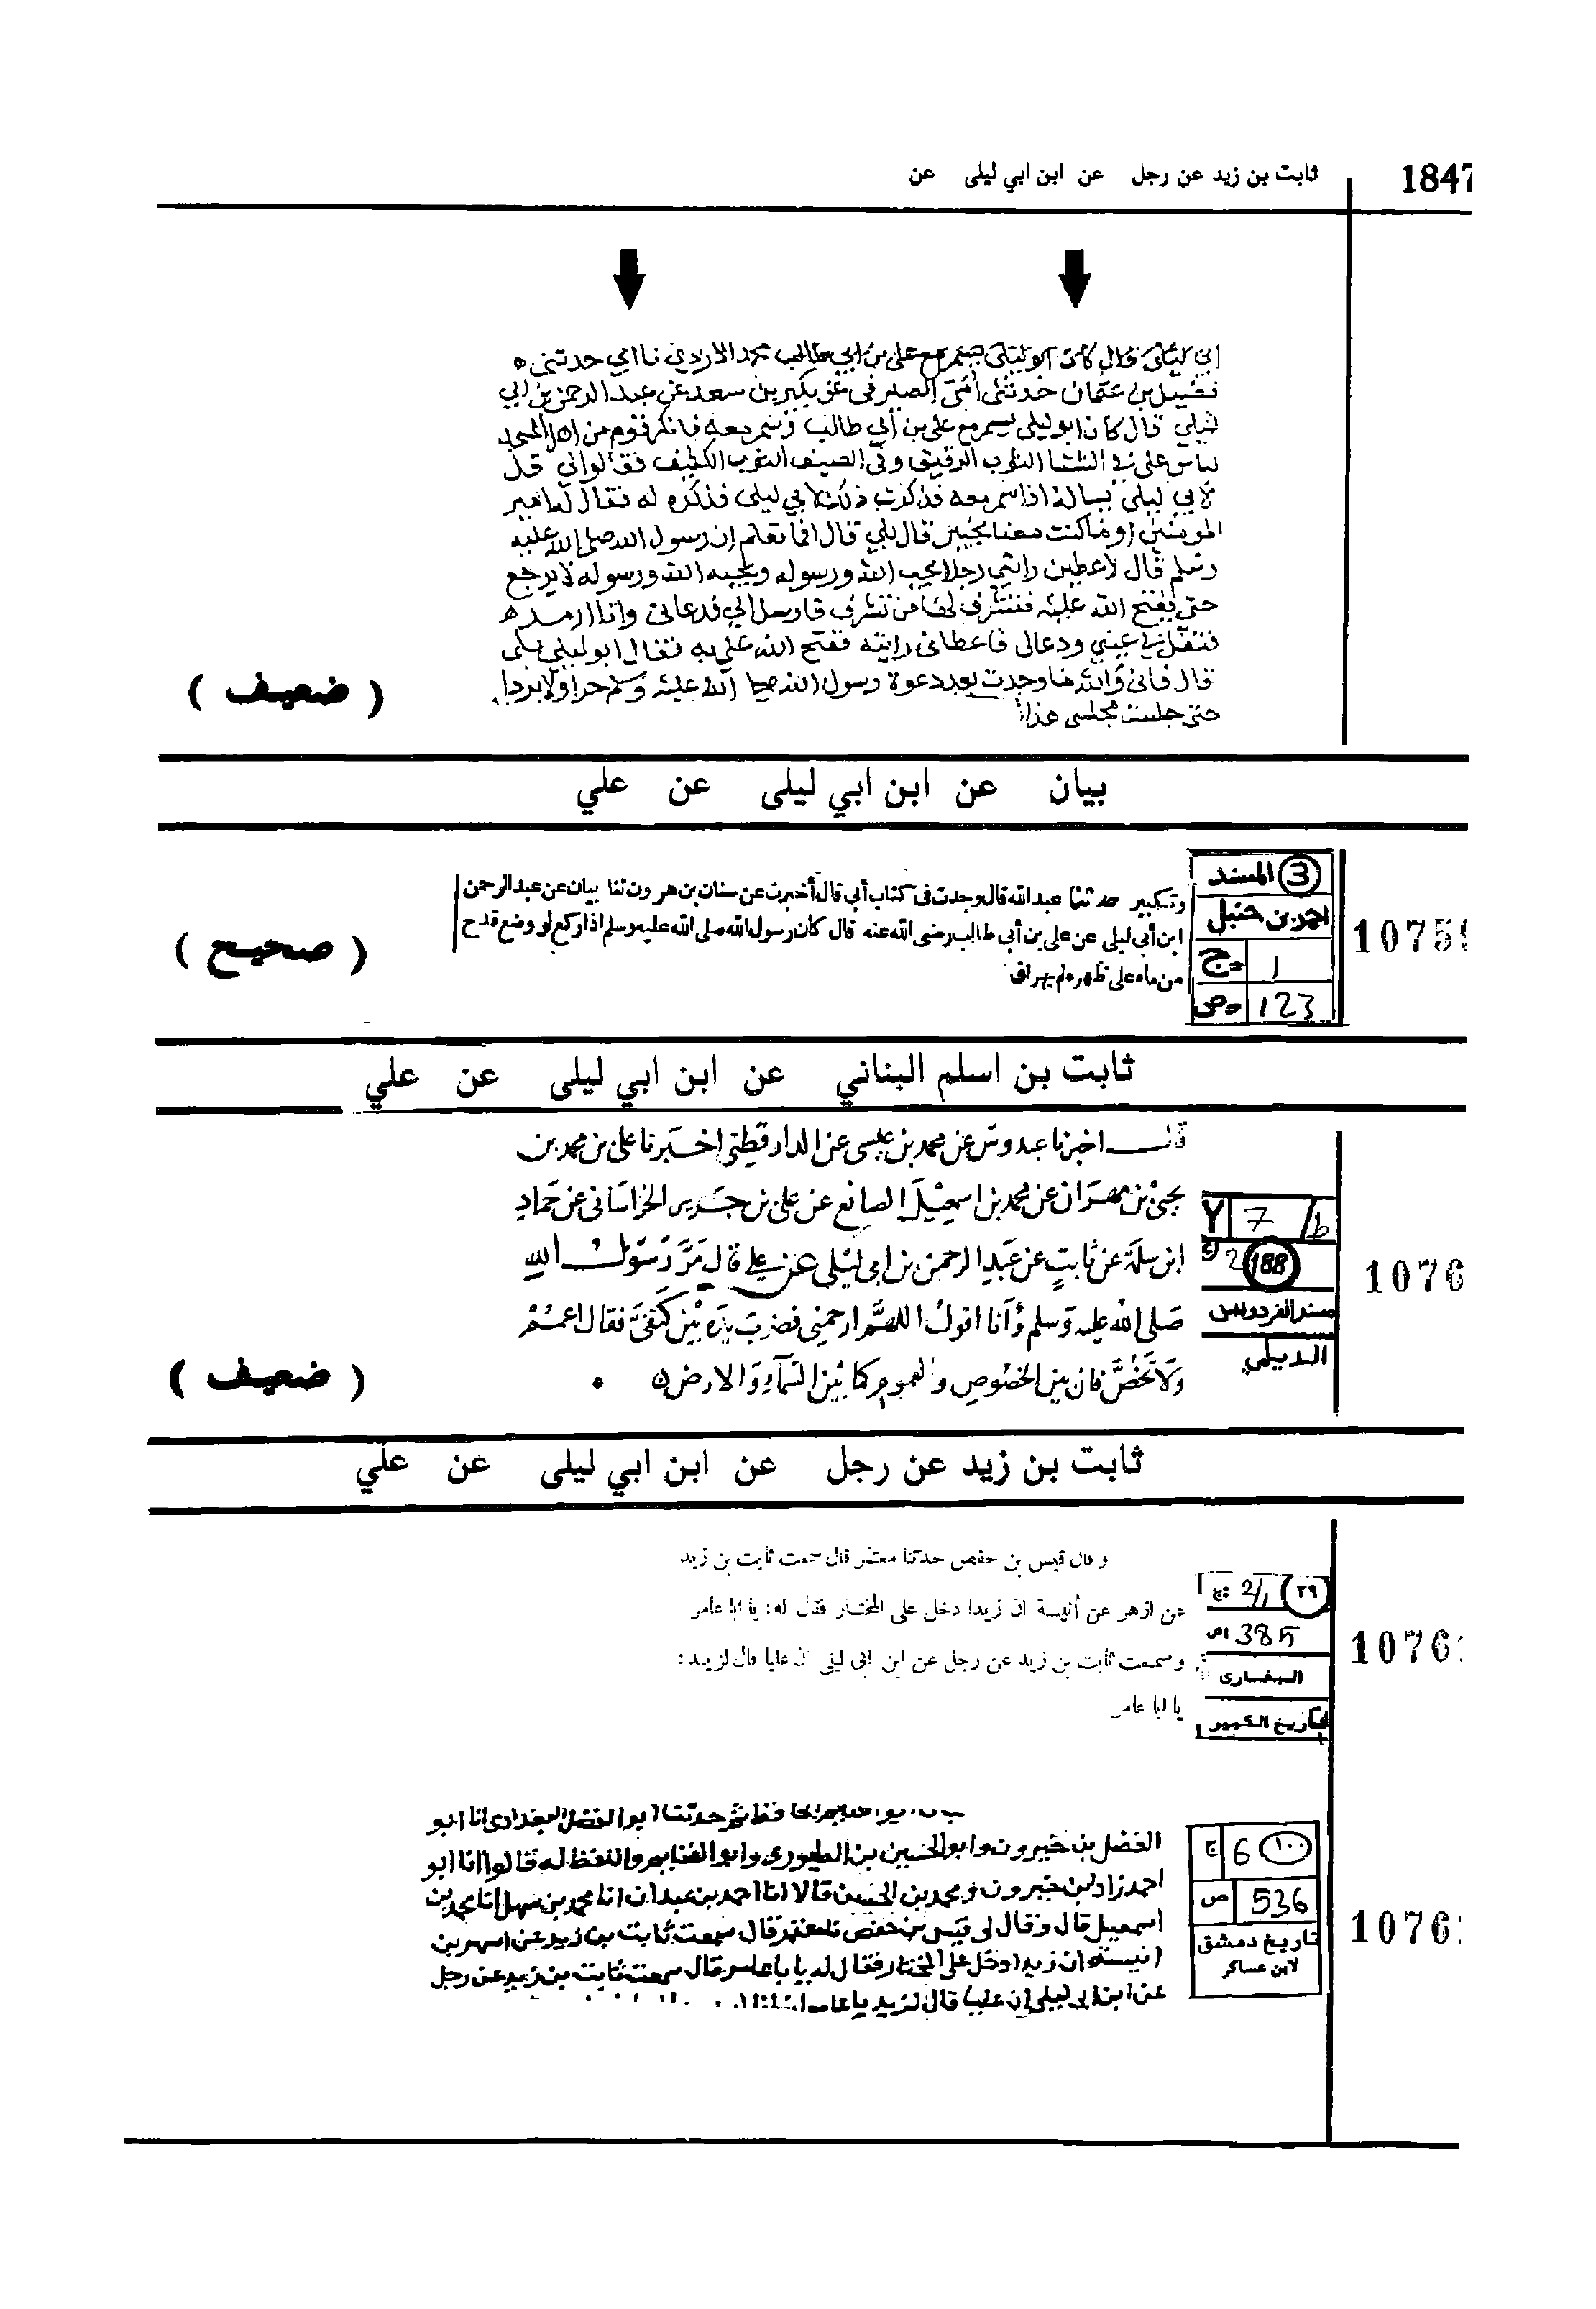 1847
ثابت بن زيد عن رجل عن ابن ابي ليلى عن
ابي ليلى قال كان ابو ليلى يسمر مع علي بن ابي طالب محمد الازدي نا ابي حدثني
فضيل بن عثمان حدثني الصيرفي عن بكير بن سعد عن عبد الرحمن بن ابي
ليلى قال كان ابو ليلى يسمر مع علي بن أبي طالب وسمر معه فانكر قوم من اهل المسجد
لباس علي في الشتا الثوب الرقيق وفي الصيف الثوب الكثيف فقالوا لي قل
لابي ليلى يساله اذا سمر معه فذكرت ذلك لابي ليلى فذكره له فقال له امير
المومنين او ما كنت معنا بخيبر قال بلى قال اما تعلم ان رسول الله صلى الله عليه
وسلم قال لاعطين رايتي رجلا يحب الله ورسوله ويحبه الله ورسوله لا يرجع
حتى يفتح الله عليه فتشرف لها من تشرف فارسل الي فدعاني وانا ارمد
فتفل في عيني ودعا لي فاعطاني رايته ففتح الله علي به فقال ابو ليلى بلى
قال فاني والله ما وجدت بعد دعوة رسول الله صلى الله عليه وسلم حرا ولا بردا
حتى جلست مجلسي هذا
( ضعيف )
بيان عن ابن ابي ليلى عن علي
3 المسند
احمد بن حنبل
ج 1
ص 123
1075
وتكبير حدثنا عبد الله قال وجدت في كتاب أبي قال أخبرت عن سنان بن هرون ثنا بيان عن عبد الرحمن
ابن أبي ليلى عن علي بن أبي طالب رضى الله عنه قال كان رسول الله صلى الله عليه وسلم اذا ركع لو وضع قدح
من ماء على ظهره لم يهراق
( صحيح )
ثابت بن اسلم البناني عن ابن ابي ليلى عن علي
7/b
2 188
مسند الفردوس
الديلمي
1076
قال اخبرنا عبدوس عن محمد بن عيسى عن الدارقطني اخبرنا علي بن محمد بن
يحيى بن مهران عن محمد بن اسمعيل الصائغ عن علي بن جرير الخراساني عن حماد
ابن سلمة عن ثابت عن عبد الرحمن بن ابي ليلى عن علي قال مر رسول الله
صلى الله عليه وسلم وأنا اقول اللهم ارحمني فضرب يده بين كتفي فقال اعمم
ولا تخص فان بين الخصوص والعموم كما بين السماء والارض
( ضعيف )
ثابت بن زيد عن رجل عن ابن ابي ليلى عن علي
٣٩ 2/1 ج
385 ص
البخاري
تاريخ الكبير
1076
وقال قيس بن حفص حدثنا معتمر قال سمعت ثابت بن زيد
عن ازهر عن أنيسة ان زيدا دخل على المختار فقال له: يا ابا عامر
وسمعت ثابت بن زيد عن رجل عن ابن ابى ليلى ان عليا قال لزيد:
يا ابا عامر
١٠٠ 6 ج
536 ص
تاريخ دمشق
لابن عساكر
1076
ثم حدثنا ابو الفضل البغدادي انا ابو
الفضل بن خيرون وابو الحسين بن الطيوري وابو الغنايم واللفظ له قالوا انا ابو
احمد زاد ابن خيرون ومحمد بن الحسن قالا انا احمد بن عبدان انا محمد بن سهل انا محمد بن
اسمعيل قال وقال لي قيس بن حفص نا معتمر قال سمعت ثابت بن زيد عن
انيسة ان زيدا دخل على المختار فقال له يا با عامر قال سمعت ثابت بن زيد عن رجل
عن ابن ابي ليلى ان عليا قال لزيد يا با عامر